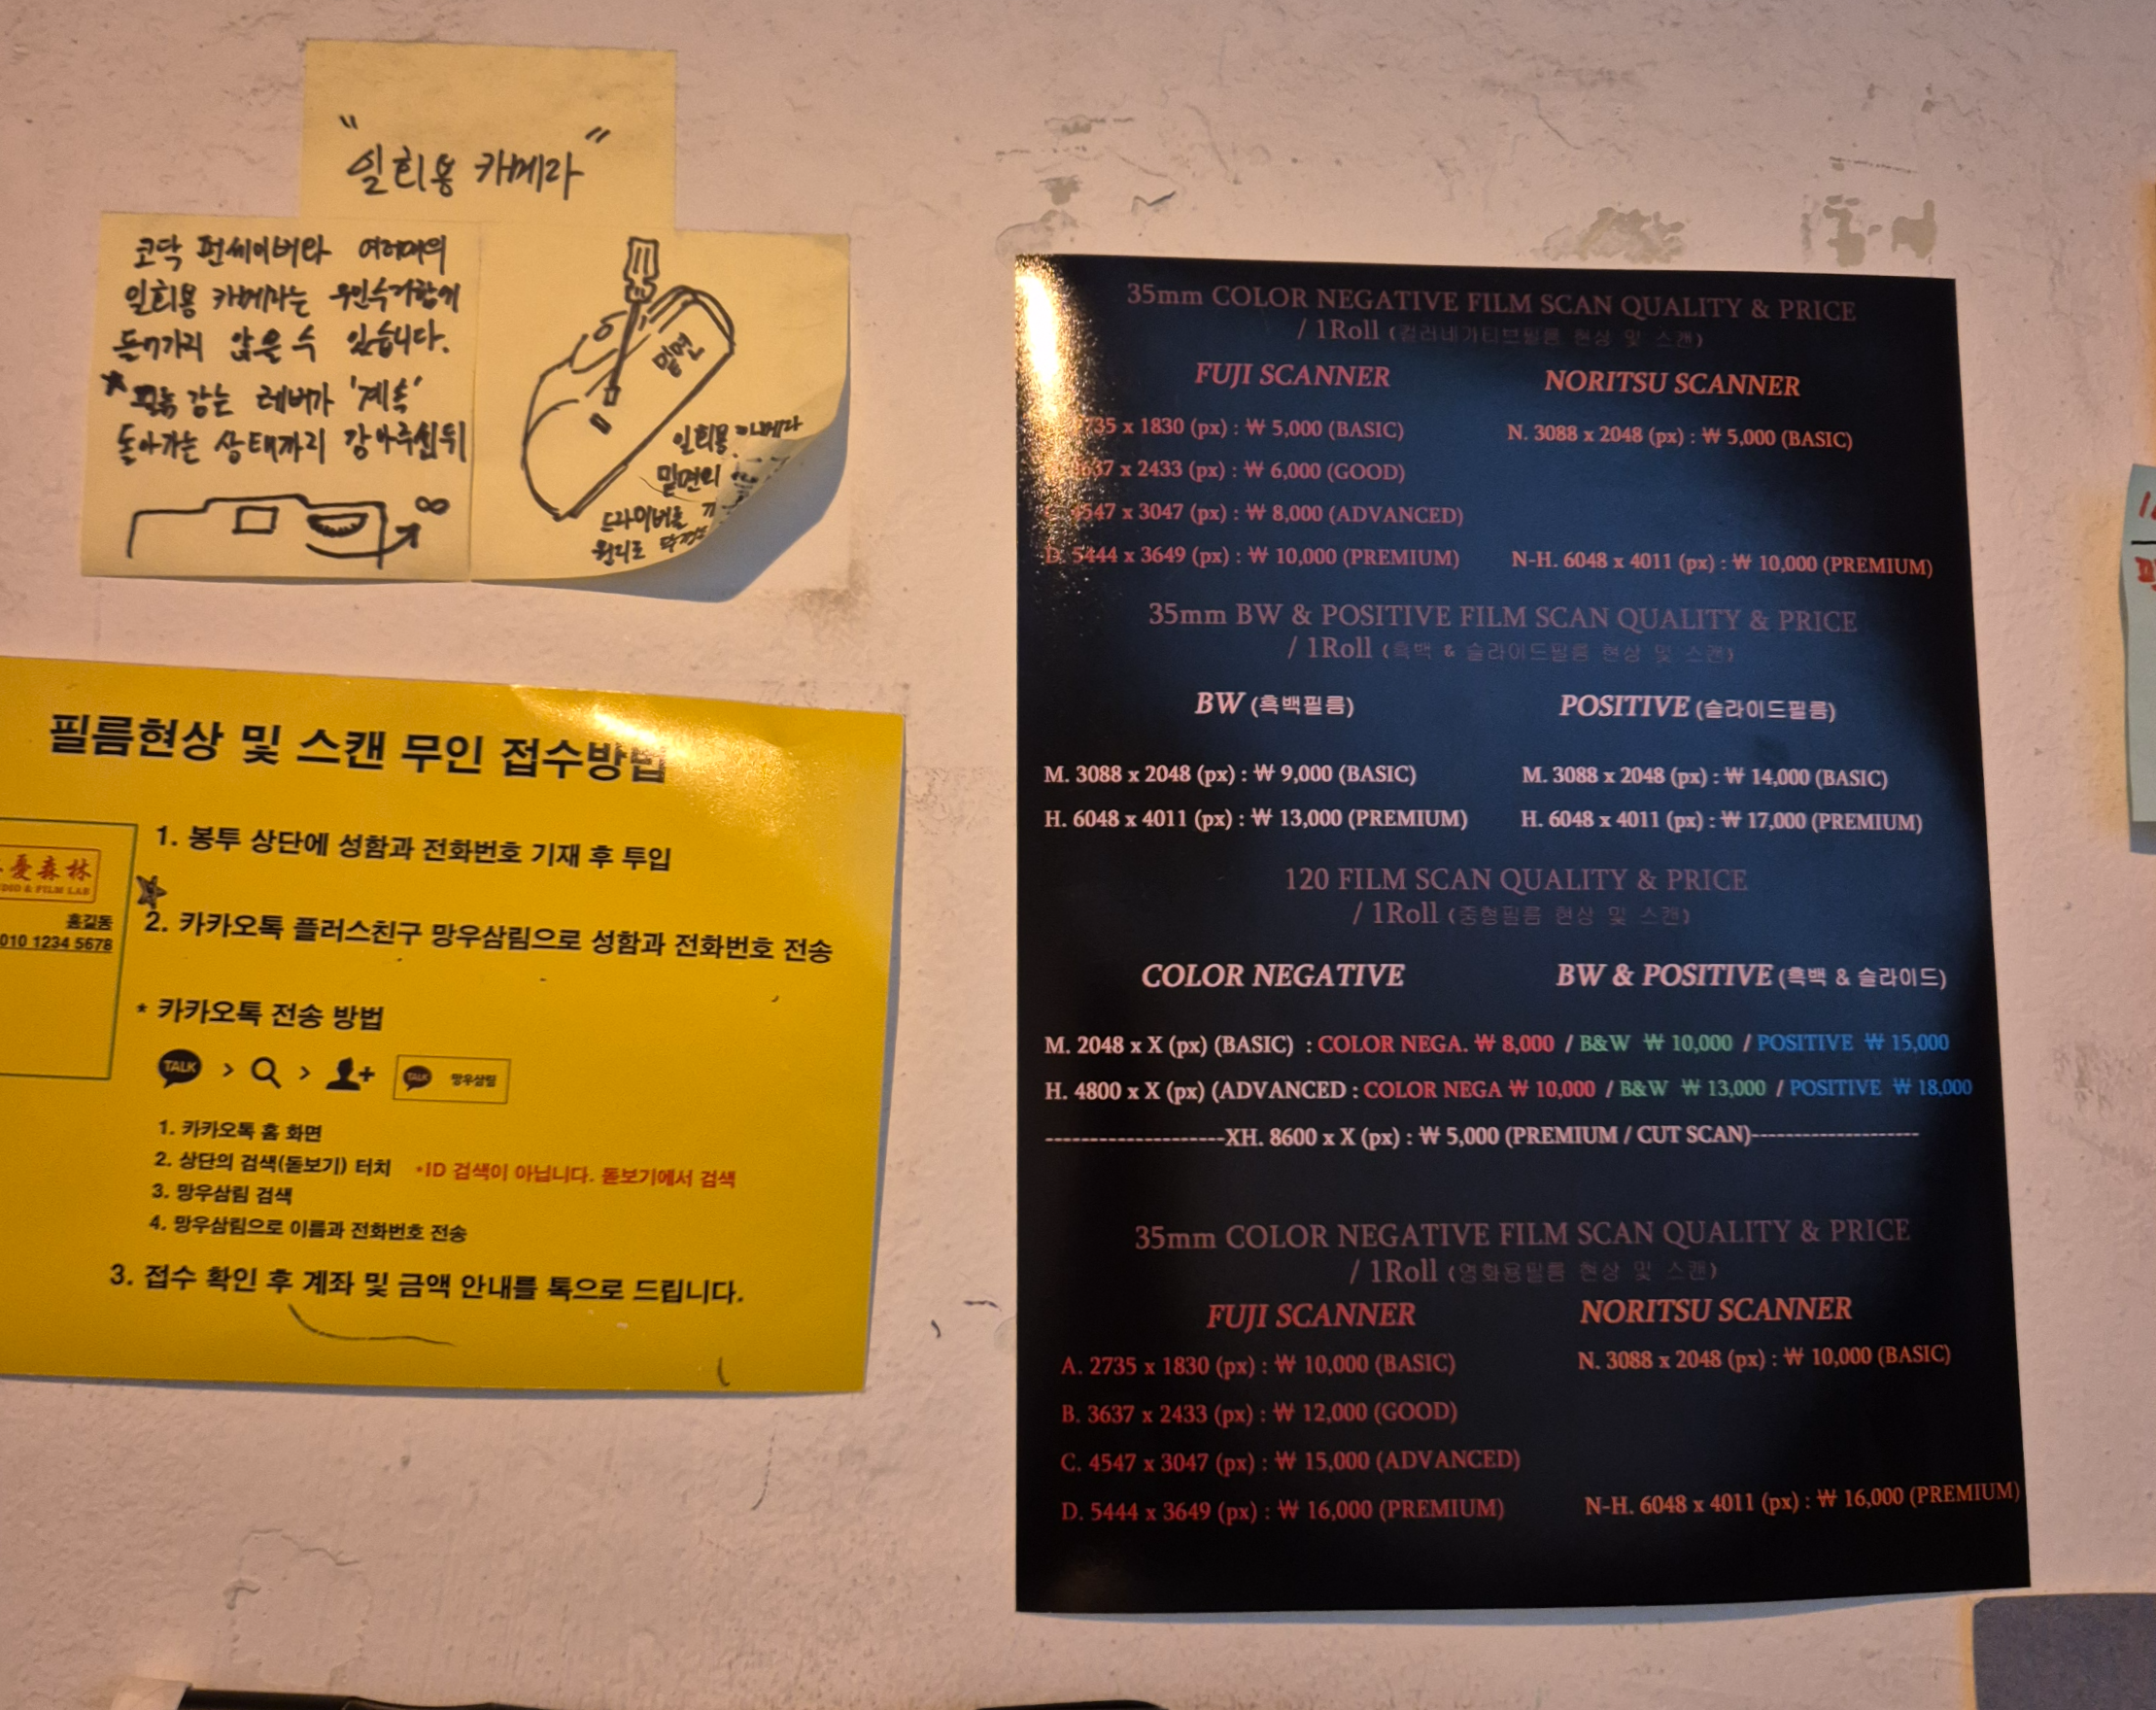 "일회용 카메라"
코닥 펀세이버와 여러매의
일회용 카메라는 무인수거함에
들어가지 않을 수 있습니다.
★필름 감는 레버가 '계속'
돌아가는 상태까지 감아주신뒤
∞
밑면
일회용 카메라
밑면의
드라이버로
원리로
필름현상 및 스캔 무인 접수방법
憂森林
DIO & FILM LAB
홍길동
010 1234 5678
1. 봉투 상단에 성함과 전화번호 기재 후 투입
2. 카카오톡 플러스친구 망우삼림으로 성함과 전화번호 전송
* 카카오톡 전송 방법
TALK > > TALK 망우삼림
1. 카카오톡 홈 화면
2. 상단의 검색(돋보기) 터치 *ID 검색이 아닙니다. 돋보기에서 검색
3. 망우삼림 검색
4. 망우삼림으로 이름과 전화번호 전송
3. 접수 확인 후 계좌 및 금액 안내를 톡으로 드립니다.
35mm COLOR NEGATIVE FILM SCAN QUALITY & PRICE
/ 1Roll (컬러네가티브필름 현상 및 스캔)
FUJI SCANNER NORITSU SCANNER
735 x 1830 (px) : ₩ 5,000 (BASIC) N. 3088 x 2048 (px) : ₩ 5,000 (BASIC)
637 x 2433 (px) : ₩ 6,000 (GOOD)
4547 x 3047 (px) : ₩ 8,000 (ADVANCED)
D. 5444 x 3649 (px) : ₩ 10,000 (PREMIUM) N-H. 6048 x 4011 (px) : ₩ 10,000 (PREMIUM)
35mm BW & POSITIVE FILM SCAN QUALITY & PRICE
/ 1Roll (흑백 & 슬라이드필름 현상 및 스캔)
BW (흑백필름) POSITIVE (슬라이드필름)
M. 3088 x 2048 (px) : ₩ 9,000 (BASIC) M. 3088 x 2048 (px) : ₩ 14,000 (BASIC)
H. 6048 x 4011 (px) : ₩ 13,000 (PREMIUM) H. 6048 x 4011 (px) : ₩ 17,000 (PREMIUM)
120 FILM SCAN QUALITY & PRICE
/ 1Roll (중형필름 현상 및 스캔)
COLOR NEGATIVE BW & POSITIVE (흑백 & 슬라이드)
M. 2048 x X (px) (BASIC) : COLOR NEGA. ₩ 8,000 / B&W ₩ 10,000 / POSITIVE ₩ 15,000
H. 4800 x X (px) (ADVANCED : COLOR NEGA ₩ 10,000 / B&W ₩ 13,000 / POSITIVE ₩ 18,000
--------------------XH. 8600 x X (px) : ₩ 5,000 (PREMIUM / CUT SCAN)-------------------
35mm COLOR NEGATIVE FILM SCAN QUALITY & PRICE
/ 1Roll (영화용필름 현상 및 스캔)
FUJI SCANNER NORITSU SCANNER
A. 2735 x 1830 (px) : ₩ 10,000 (BASIC) N. 3088 x 2048 (px) : ₩ 10,000 (BASIC)
B. 3637 x 2433 (px) : ₩ 12,000 (GOOD)
C. 4547 x 3047 (px) : ₩ 15,000 (ADVANCED)
D. 5444 x 3649 (px) : ₩ 16,000 (PREMIUM) N-H. 6048 x 4011 (px) : ₩ 16,000 (PREMIUM)